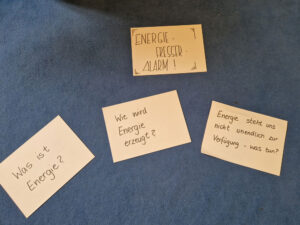 ENERGIE-
FRESSER-
ALARM!
Was ist
Energie?
Wie wird
Energie
erzeugt?
Energie steht uns
nicht unendlich zur
Verfügung - was tun?